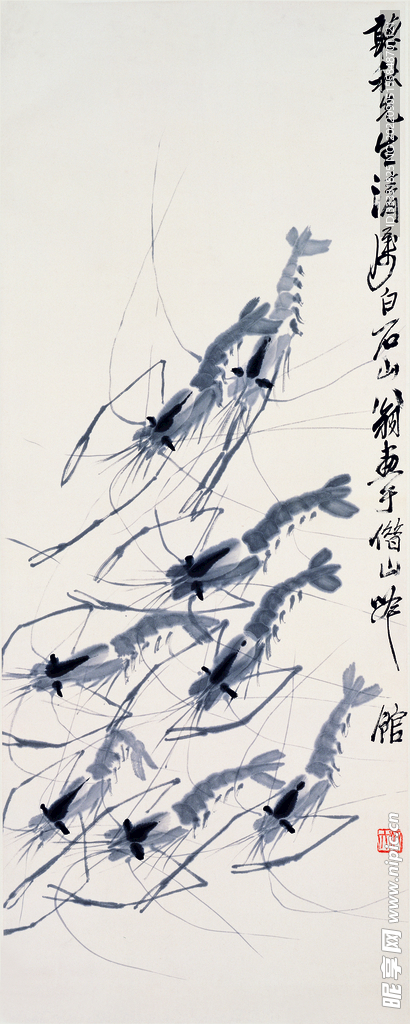 聽秋先生清属白石山翁画于借山吟館
昵享网 www.nipic.cn